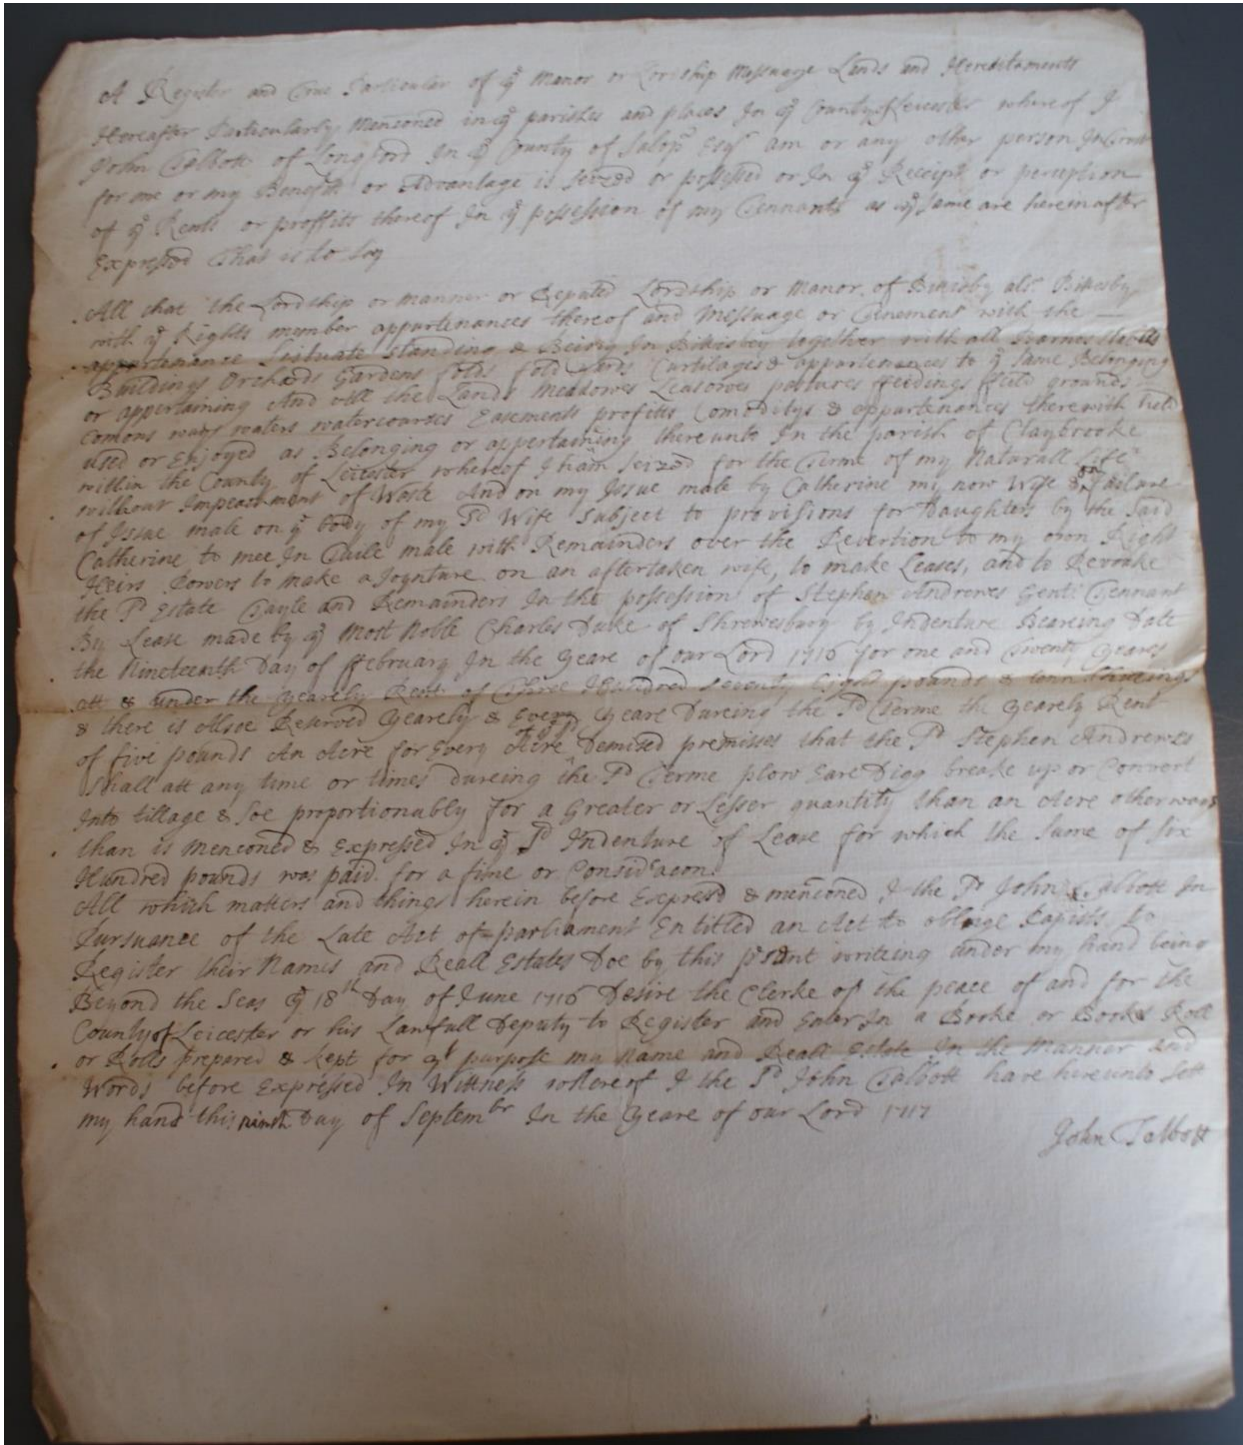 A Register and True Particular of ye Manor or Lordship Messuage Lands and Hereditaments
Hereafter Particularly Menconed in ye parishes and places In ye County of Leicester whereof I
John Talbott of Longford In ye County of Salop Esqr am or any other person In Trust
for me or my Benefitt or Advantage is Seized or possessed or In ye Receipt or perception
of ye Rents or proffitts thereof In ye possession of my Tennants as ye same are hereinafter
Expressed That is to say
All that the Lordship or manner or Reputed Lordship or Manor of Bittesby als Bittesby
with ye Rights member appurtenances thereof and Messuage or Tenement with the
appurtenance Scituate standing & Being In Bittesby together with all Barnes Stables
Buildings Orchards Gardens folds fold yards Curtilages & appurtenances to ye same Belonging
or appertaining And All the Lands Meadowes Leasowes pastures ffeedings ffeild grounds
Comons ways waters watercourses Easements profitts Comoditys & appurtenances therewith held
used or Enjoyed as Belonging or appertaining thereunto In the parish of Claybrooke
within the County of Leicester whereof I ham Seized for the Terme of my Naturall Life
without Impeachment of Waste And on my Issue male by Catherine my now Wife & on failure
of Issue male on ye body of my Sd Wife Subject to provisions for Daughters by the Said
Catherine to mee In Taile male with Remainders over the Revertion to my own Right
Heirs Powers to make a Joynture on an aftertaken wife, to make Leases, and to Revoake
the Sd Estate Tayle and Remainders In the possession of Stephen Andrewes Gent Tennant
By Lease made by ye Most Noble Charles Duke of Shrewesbury by Indenture Beareing Date
the Nineteenth Day of ffebruary In the Yeare of our Lord 1716 for one and Twenty yeares
att & under the yearely Rent of Three Hundred Seventy Eight pounds & tenn shillings
& there is Alsoe Reserved yearely & Every yeare Dureing the Sd Terme the yearely Rent
of five pounds An Acre for Every Acre Demised premisses that the Sd Stephen Andrewes
Shall att any time or times dureing the Sd Terme plow Eare Digg breake up or Convert
Into tillage & Soe proportionably for a Greater or Lesser quantity than an Acre otherways
than is menconed & Expressed In ye Sd Indenture of Lease for which the Sume of Six
Hundred pounds was paid for a fine or Consideracon
All which matters and things herein before Expressd & menconed I the Sd John Talbott In
Pursuance of the Late Act of parliament Entitled an Act to obleige Papists to
Register their Names and Reall Estates Doe by this psent writeing under my hand being
Beyond the Seas ye 18th Day of June 1716 Desire the Clerke of the peace of and for the
County of Leicester or his Lawfull Deputy to Register and Enter In a Booke or Books Roll
or Rolls prepared & kept for yt purpose my name and Reall Estate In the Manner and
Words before Expressed In Wittness whereof I the Sd John Talbott have hereunto Sett
my hand this ninth Day of Septembr In the Yeare of our Lord 1717
John Talbott